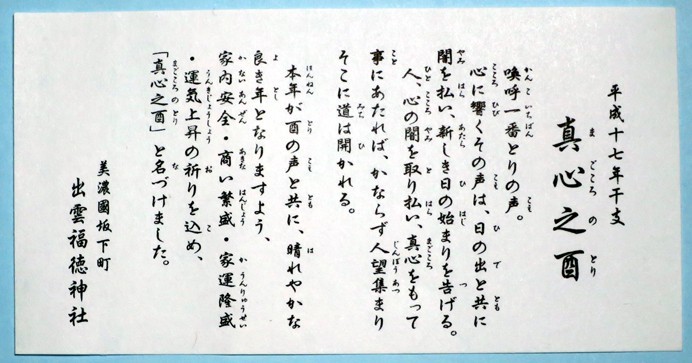 平成十七年干支
真心之酉
喚呼一番とりの声。
心に響くその声は、日の出と共に
闇を払い、新しき日の始まりを告げる。
人、心の闇を取り払い、真心をもって
事にあたれば、かならず人望集まり
そこに道は開かれる。
本年が酉の声と共に、晴れやかな
良き年となりますよう、
家内安全・商い繁盛・家運隆盛
・運気上昇の祈りを込め、
「真心之酉」と名づけました。
美濃國坂下町
出雲福徳神社